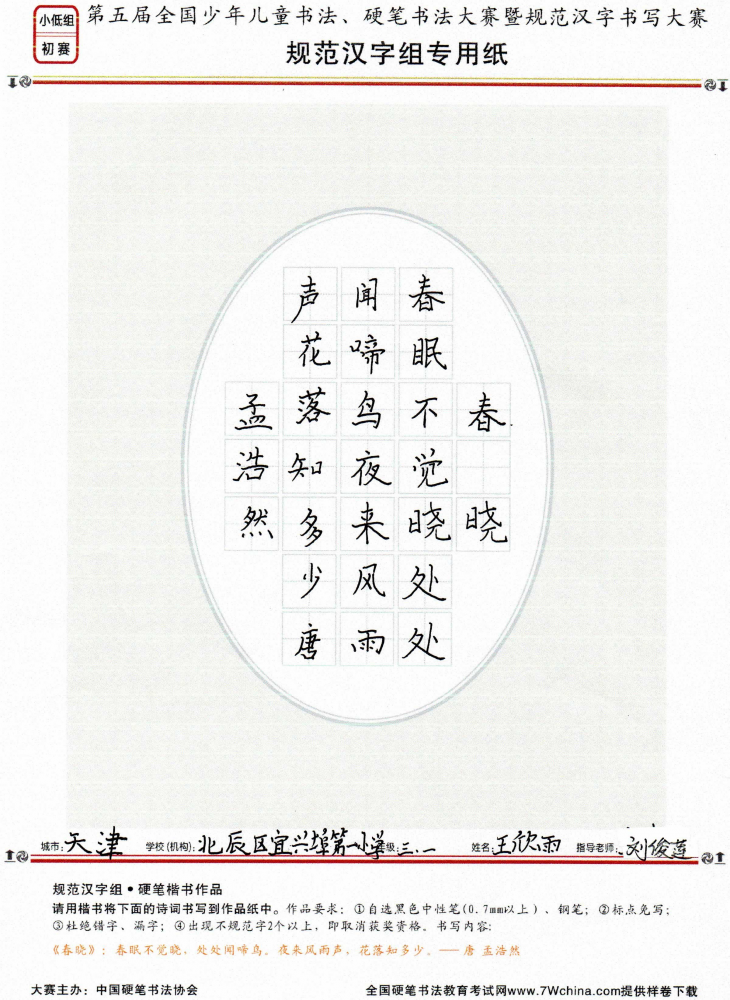 小低组
初赛
第五届全国少年儿童书法、硬笔书法大赛暨规范汉字书写大赛
规范汉字组专用纸
春晓
春眠不觉晓处处
闻啼鸟夜来风雨
声花落知多少唐
孟浩然
城市:天津 学校(机构):北辰区宜兴埠第一小学 班级:三.一 姓名:王欣雨 指导老师:刘俊莲
规范汉字组•硬笔楷书作品
请用楷书将下面的诗词书写到作品纸中。作品要求:①自选黑色中性笔(0.7mm以上)、钢笔;②标点免写;
③杜绝错字、漏字;④出现不规范字2个以上,即取消获奖资格。书写内容:
《春晓》:春眠不觉晓,处处闻啼鸟。夜来风雨声,花落知多少。——唐 孟浩然
大赛主办:中国硬笔书法协会 全国硬笔书法教育考试网www.7Wchina.com提供样卷下载